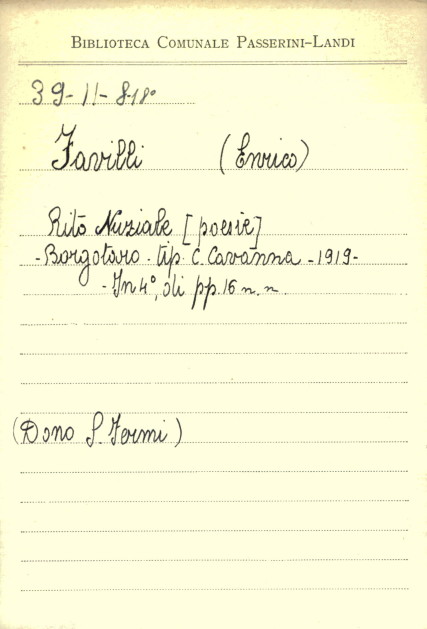 BIBLIOTECA COMUNALE PASSERINI-LANDI
39-11-8-18°
Favilli (Enrico)
Rito Nuziale [poesie]
- Borgotaro - tip. C. Cavanna - 1919 -
- In 4°, di pp. 16 n. n.
(Dono S. Fermi)